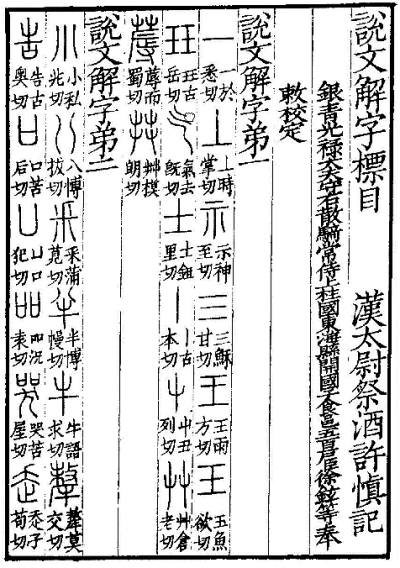 說文解字標目 漢太尉祭酒許慎記
銀青光祿大夫守右散騎常侍上柱國東海縣開國子食邑五百戶臣徐鉉等奉
敕校定
說文解字弟一
一 一於悉切 丄 丄時掌切 示 示神至切 三 三穌甘切 王 王雨方切 玉 玉魚欲切
玨 玨古岳切 气 气去旣切 士 士鉏里切 丨 丨古本切 屮 屮丑列切 艸 艸倉老切
蓐 蓐而蜀切 茻 茻模朗切
說文解字弟二
小 小私兆切 八 八博拔切 釆 釆蒲莧切 半 半博幔切 牛 牛語求切 犛 犛莫交切
告 告古奧切 口 口苦后切 凵 凵口犯切 吅 吅況袁切 哭 哭苦屋切 走 走子苟切